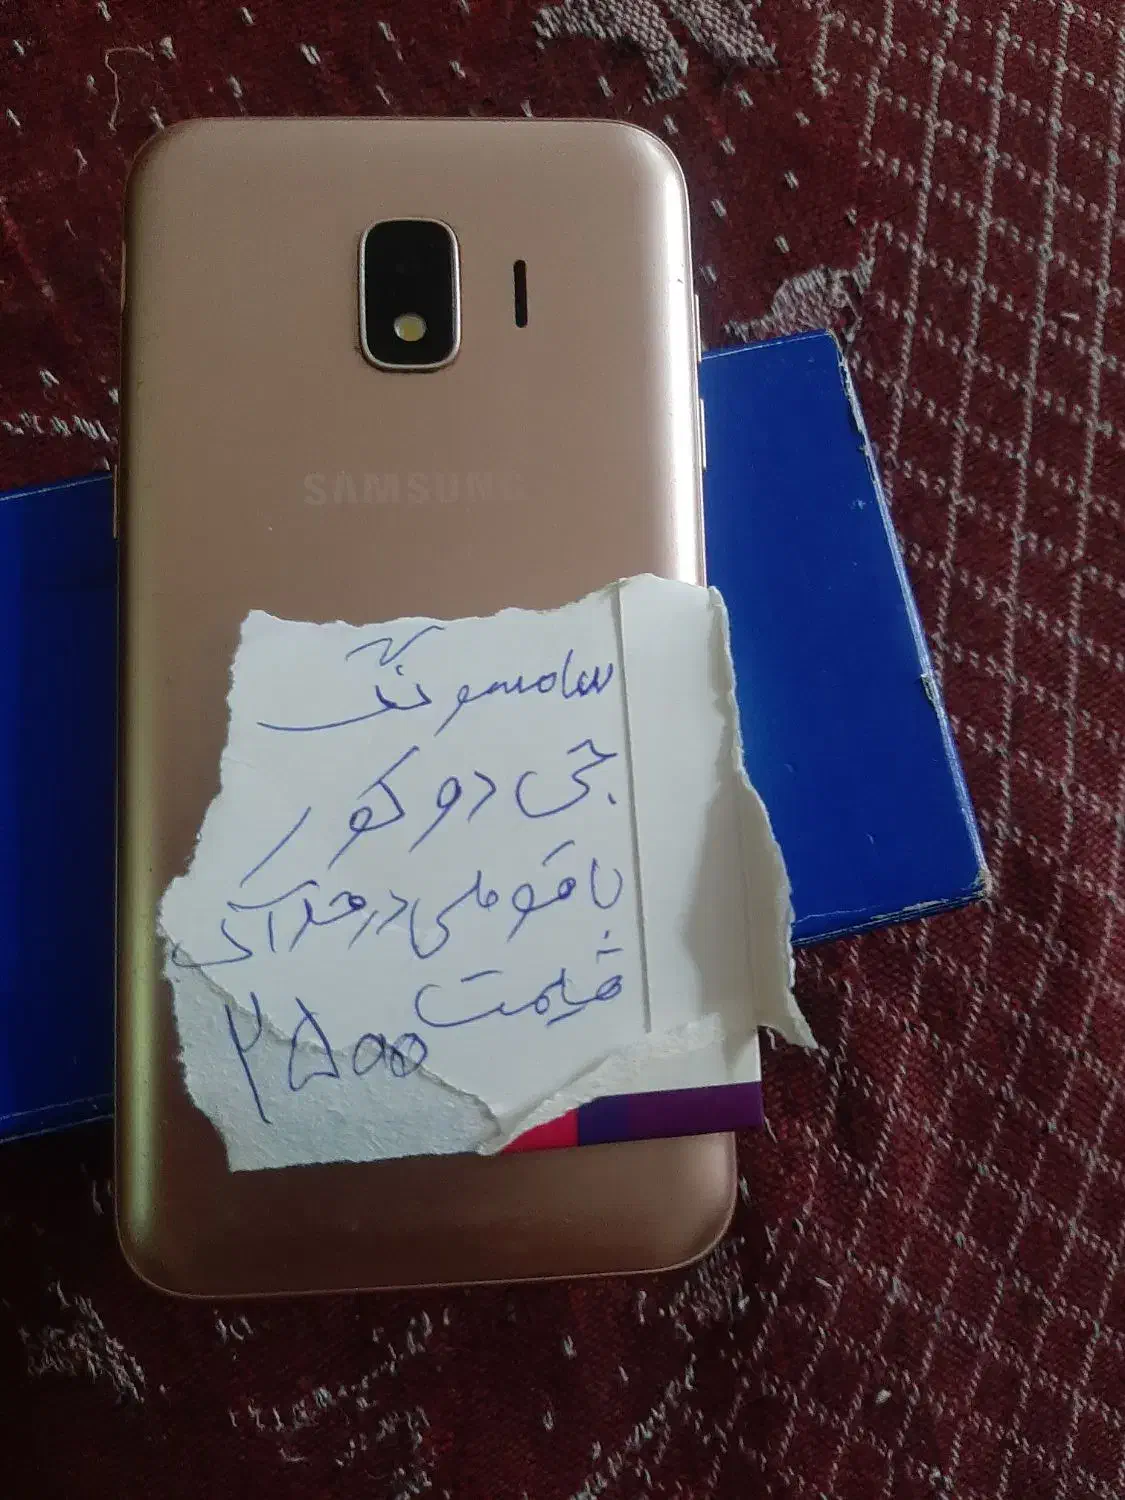 SAMSUNG
سامسونگ
جی دو کور
با قو ملی در حد آک
قیمت
۲۵۰۰